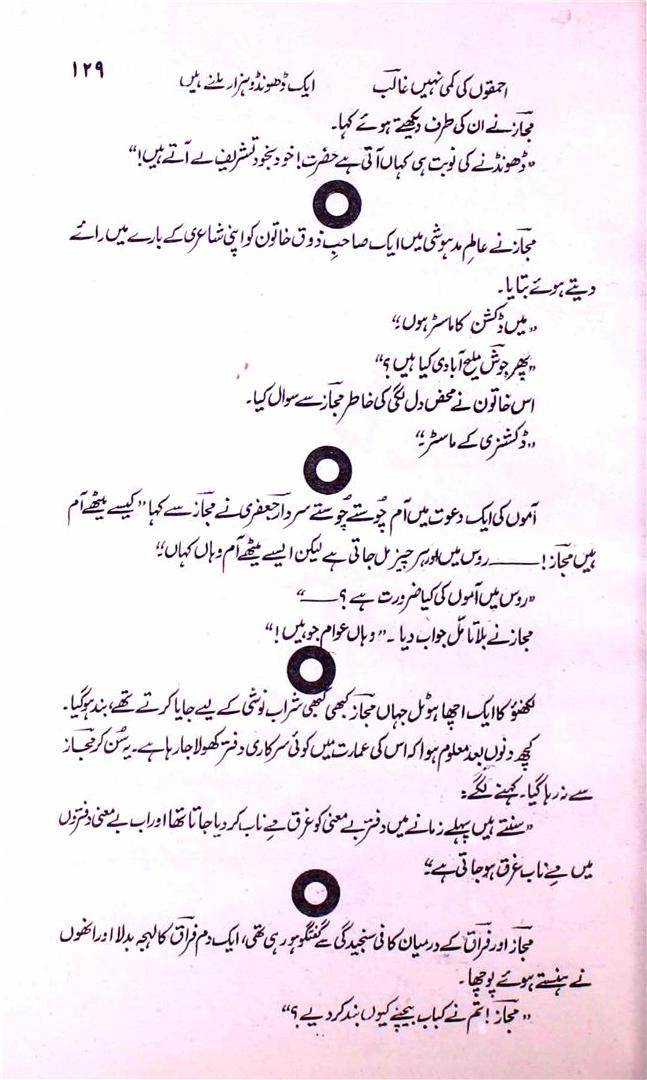 ۱۲۹
احمقوں کی کمی نہیں غالبؔ ایک ڈھونڈو ہزار ملتے ہیں
مجازؔ نے ان کی طرف دیکھتے ہوئے کہا۔
”ڈھونڈنے کی نوبت ہی کہاں آتی ہے حضرت! خود بخود تشریف لے آتے ہیں!“
مجازؔ نے عالمِ مدہوشی میں ایک صاحبِ ذوق خاتون کو اپنی شاعری کے بارے میں رائے
دیتے ہوئے بتایا۔
”میں ڈکشن کا ماسٹر ہوں۔“
”پھر جوشؔ ملیح آبادی کیا ہیں؟“
اس خاتون نے محض دل لگی کی خاطر مجازؔ سے سوال کیا۔
”ڈکشنری کے ماسٹر۔“
آموں کی ایک دعوت میں آم چُوستے چُوستے سردار جعفری نے مجازؔ سے کہا ”کیسے میٹھے آم
ہیں مجازؔ! ——— روس میں اور ہر چیز مل جاتی ہے لیکن ایسے میٹھے آم وہاں کہاں۔“
”روس میں آموں کی کیا ضرورت ہے؟ ——“
مجازؔ نے بلا تامّل جواب دیا۔ ”وہاں عوام جو ہیں!“
لکھنؤ کا ایک اچھا ہوٹل جہاں مجازؔ کبھی کبھی شراب نوشی کے لیے جایا کرتے تھے، بند ہوگیا۔
کچھ دنوں بعد معلوم ہوا کہ اس کی عمارت میں کوئی سرکاری دفتر کھولا جا رہا ہے۔ یہ سُن کر مجازؔ
سے نہ رہا گیا۔ کہنے لگے:
”سنتے ہیں پہلے زمانے میں دفترِ بے معنی کو غرقِ مئے ناب کر دیا جاتا تھا اور اب بے معنی دفتروں
میں مئے ناب غرق ہو جاتی ہے۔“
مجازؔ اور فراقؔ کے درمیان کافی سنجیدگی سے گفتگو ہو رہی تھی، ایک دم فراقؔ کا لہجہ بدلا اور انھوں
نے ہنستے ہوئے پوچھا۔
”مجازؔ! تم نے کباب بیچنے کیوں بند کر دیے؟“